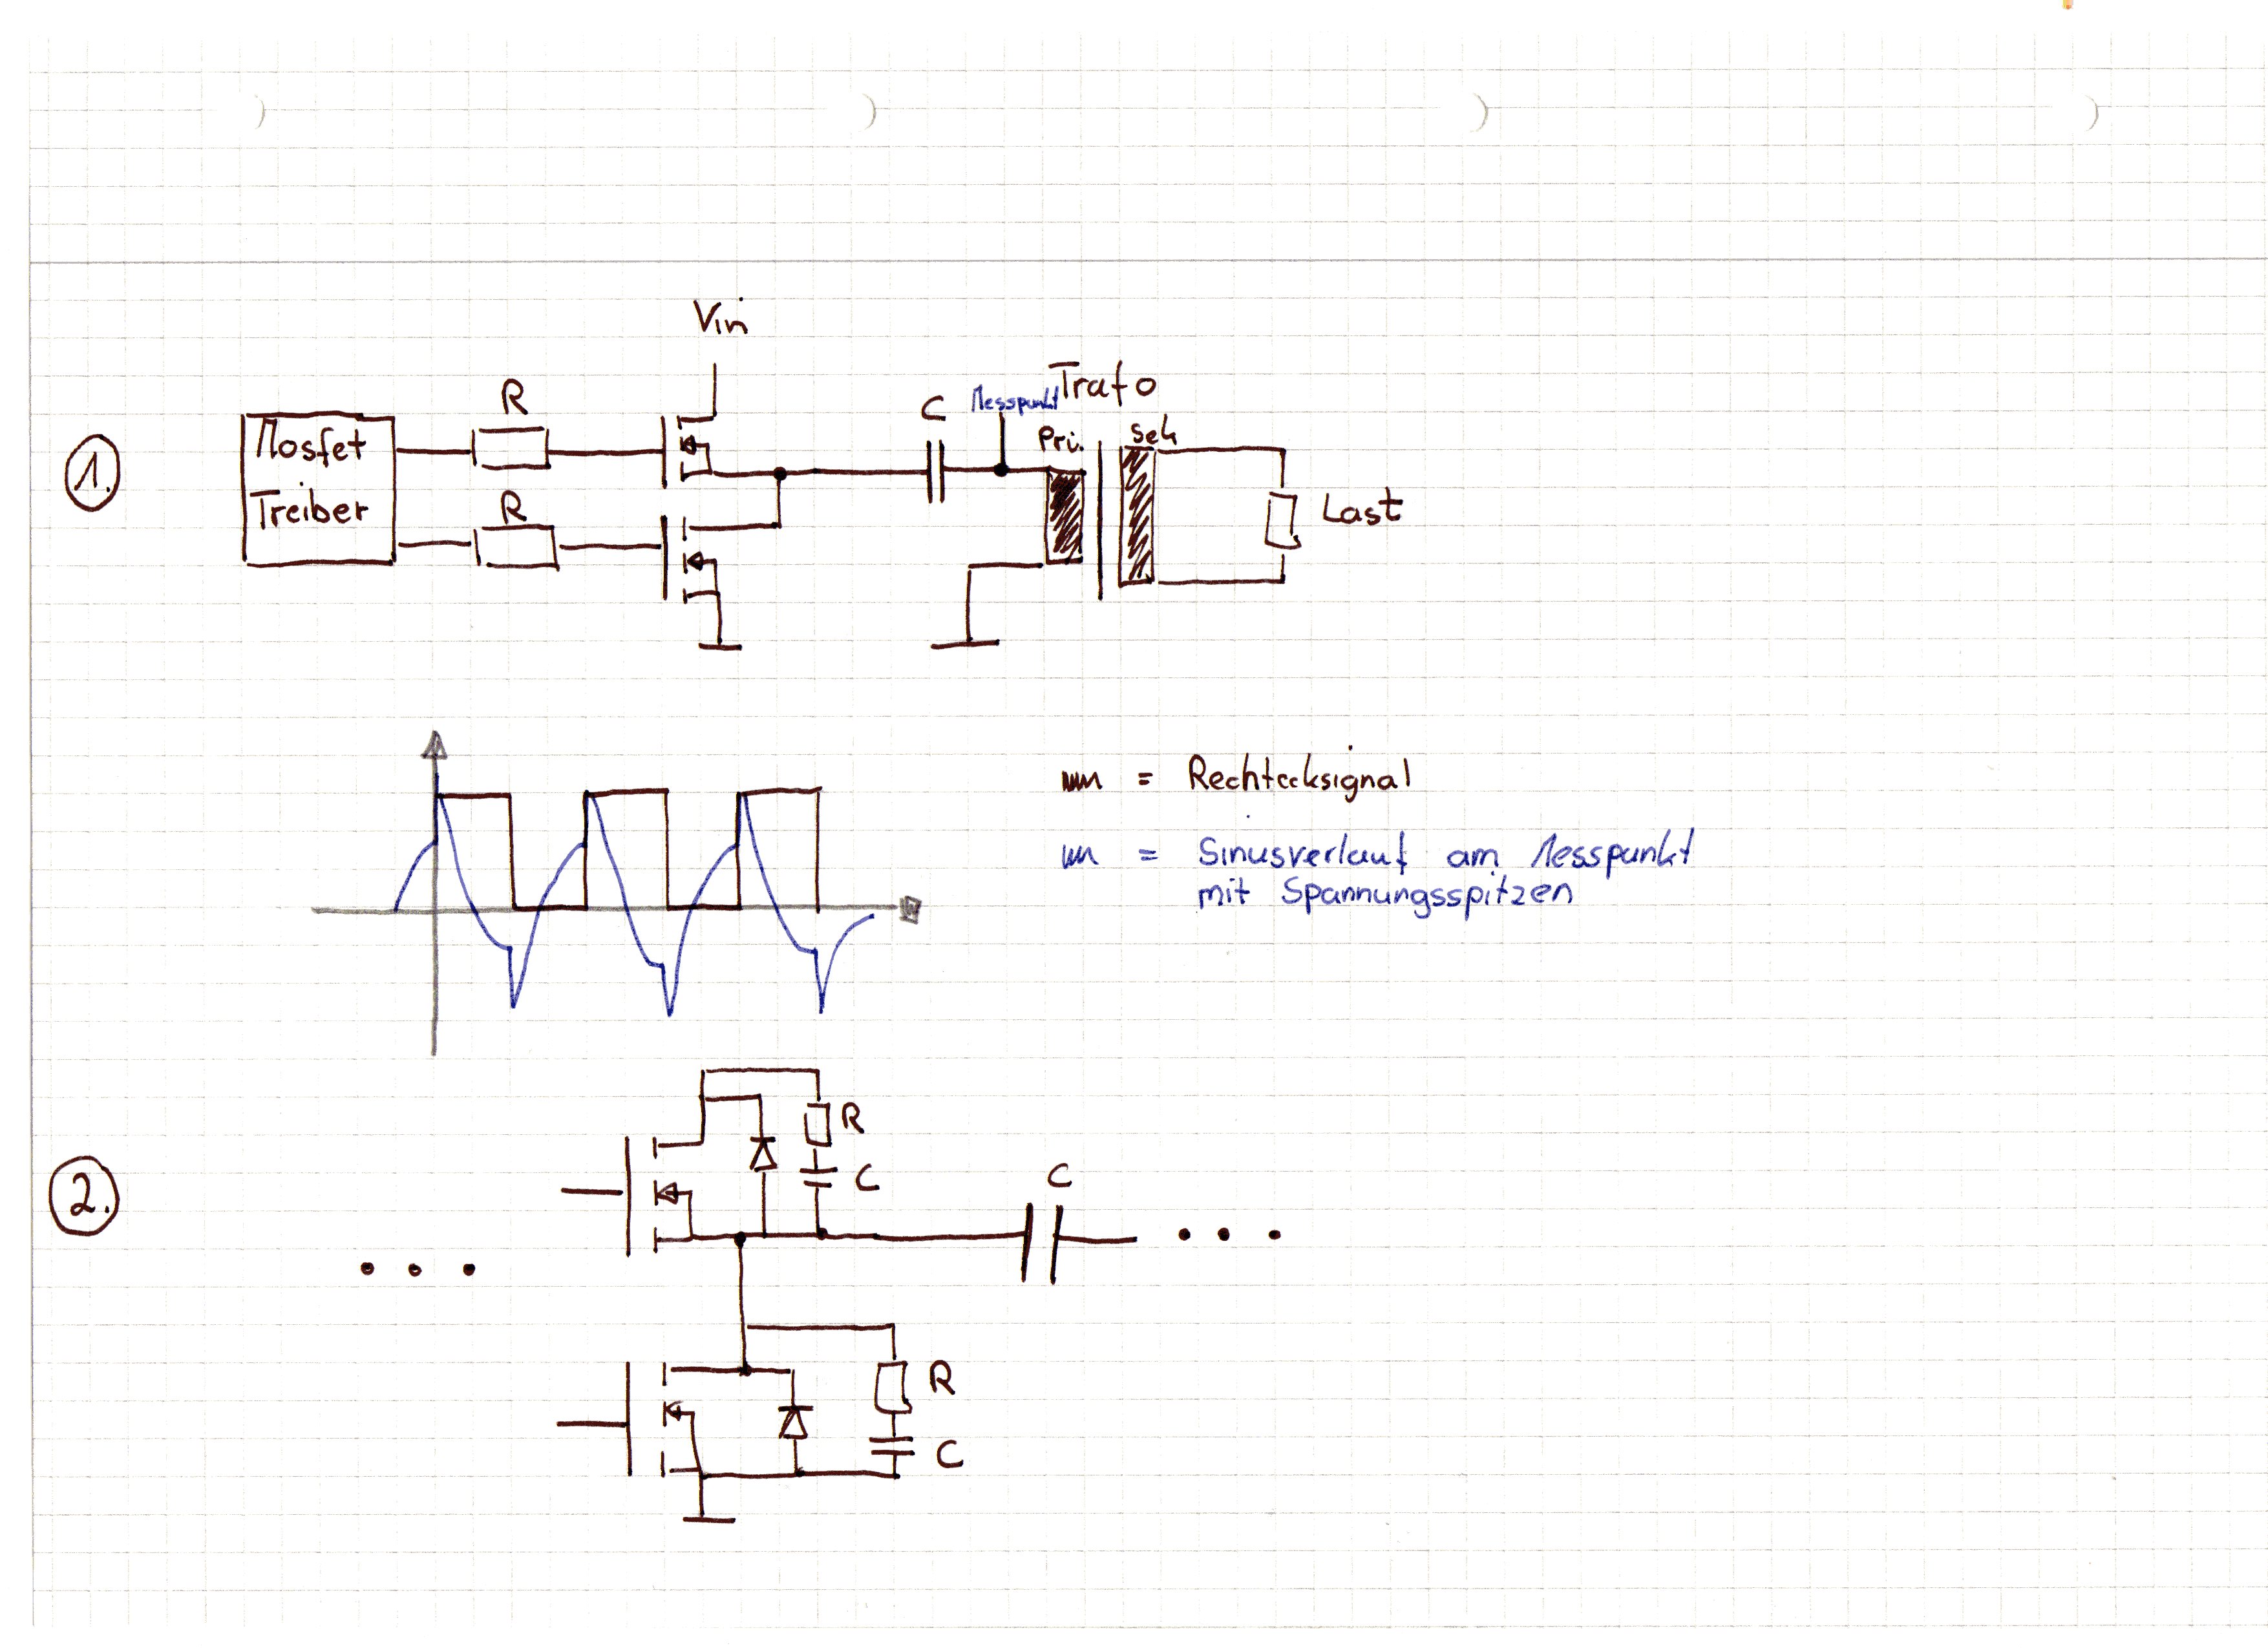 Vin
1.
Mosfet
Treiber
R
R
C
Messpunkt
Trafo
Pri.
Sek
Last
= Rechtecksignal
= Sinusverlauf am Messpunkt
mit Spannungsspitzen
2.
R
C
C
R
C